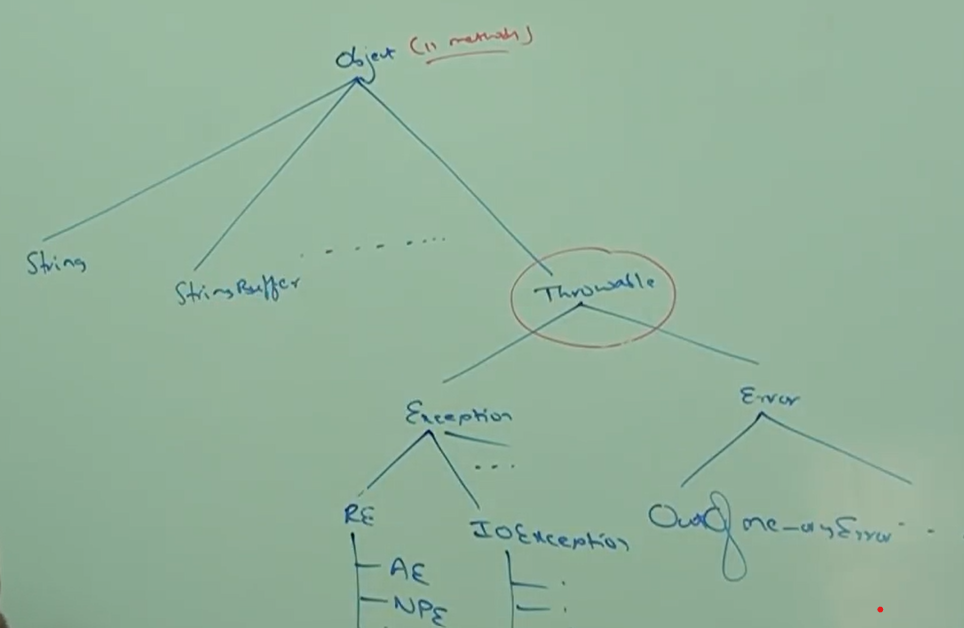 Object (11 methods)
String
StringBuffer
Throwable
Exception
Error
RE
IOException
OutOfmemoryError
AE
NPE